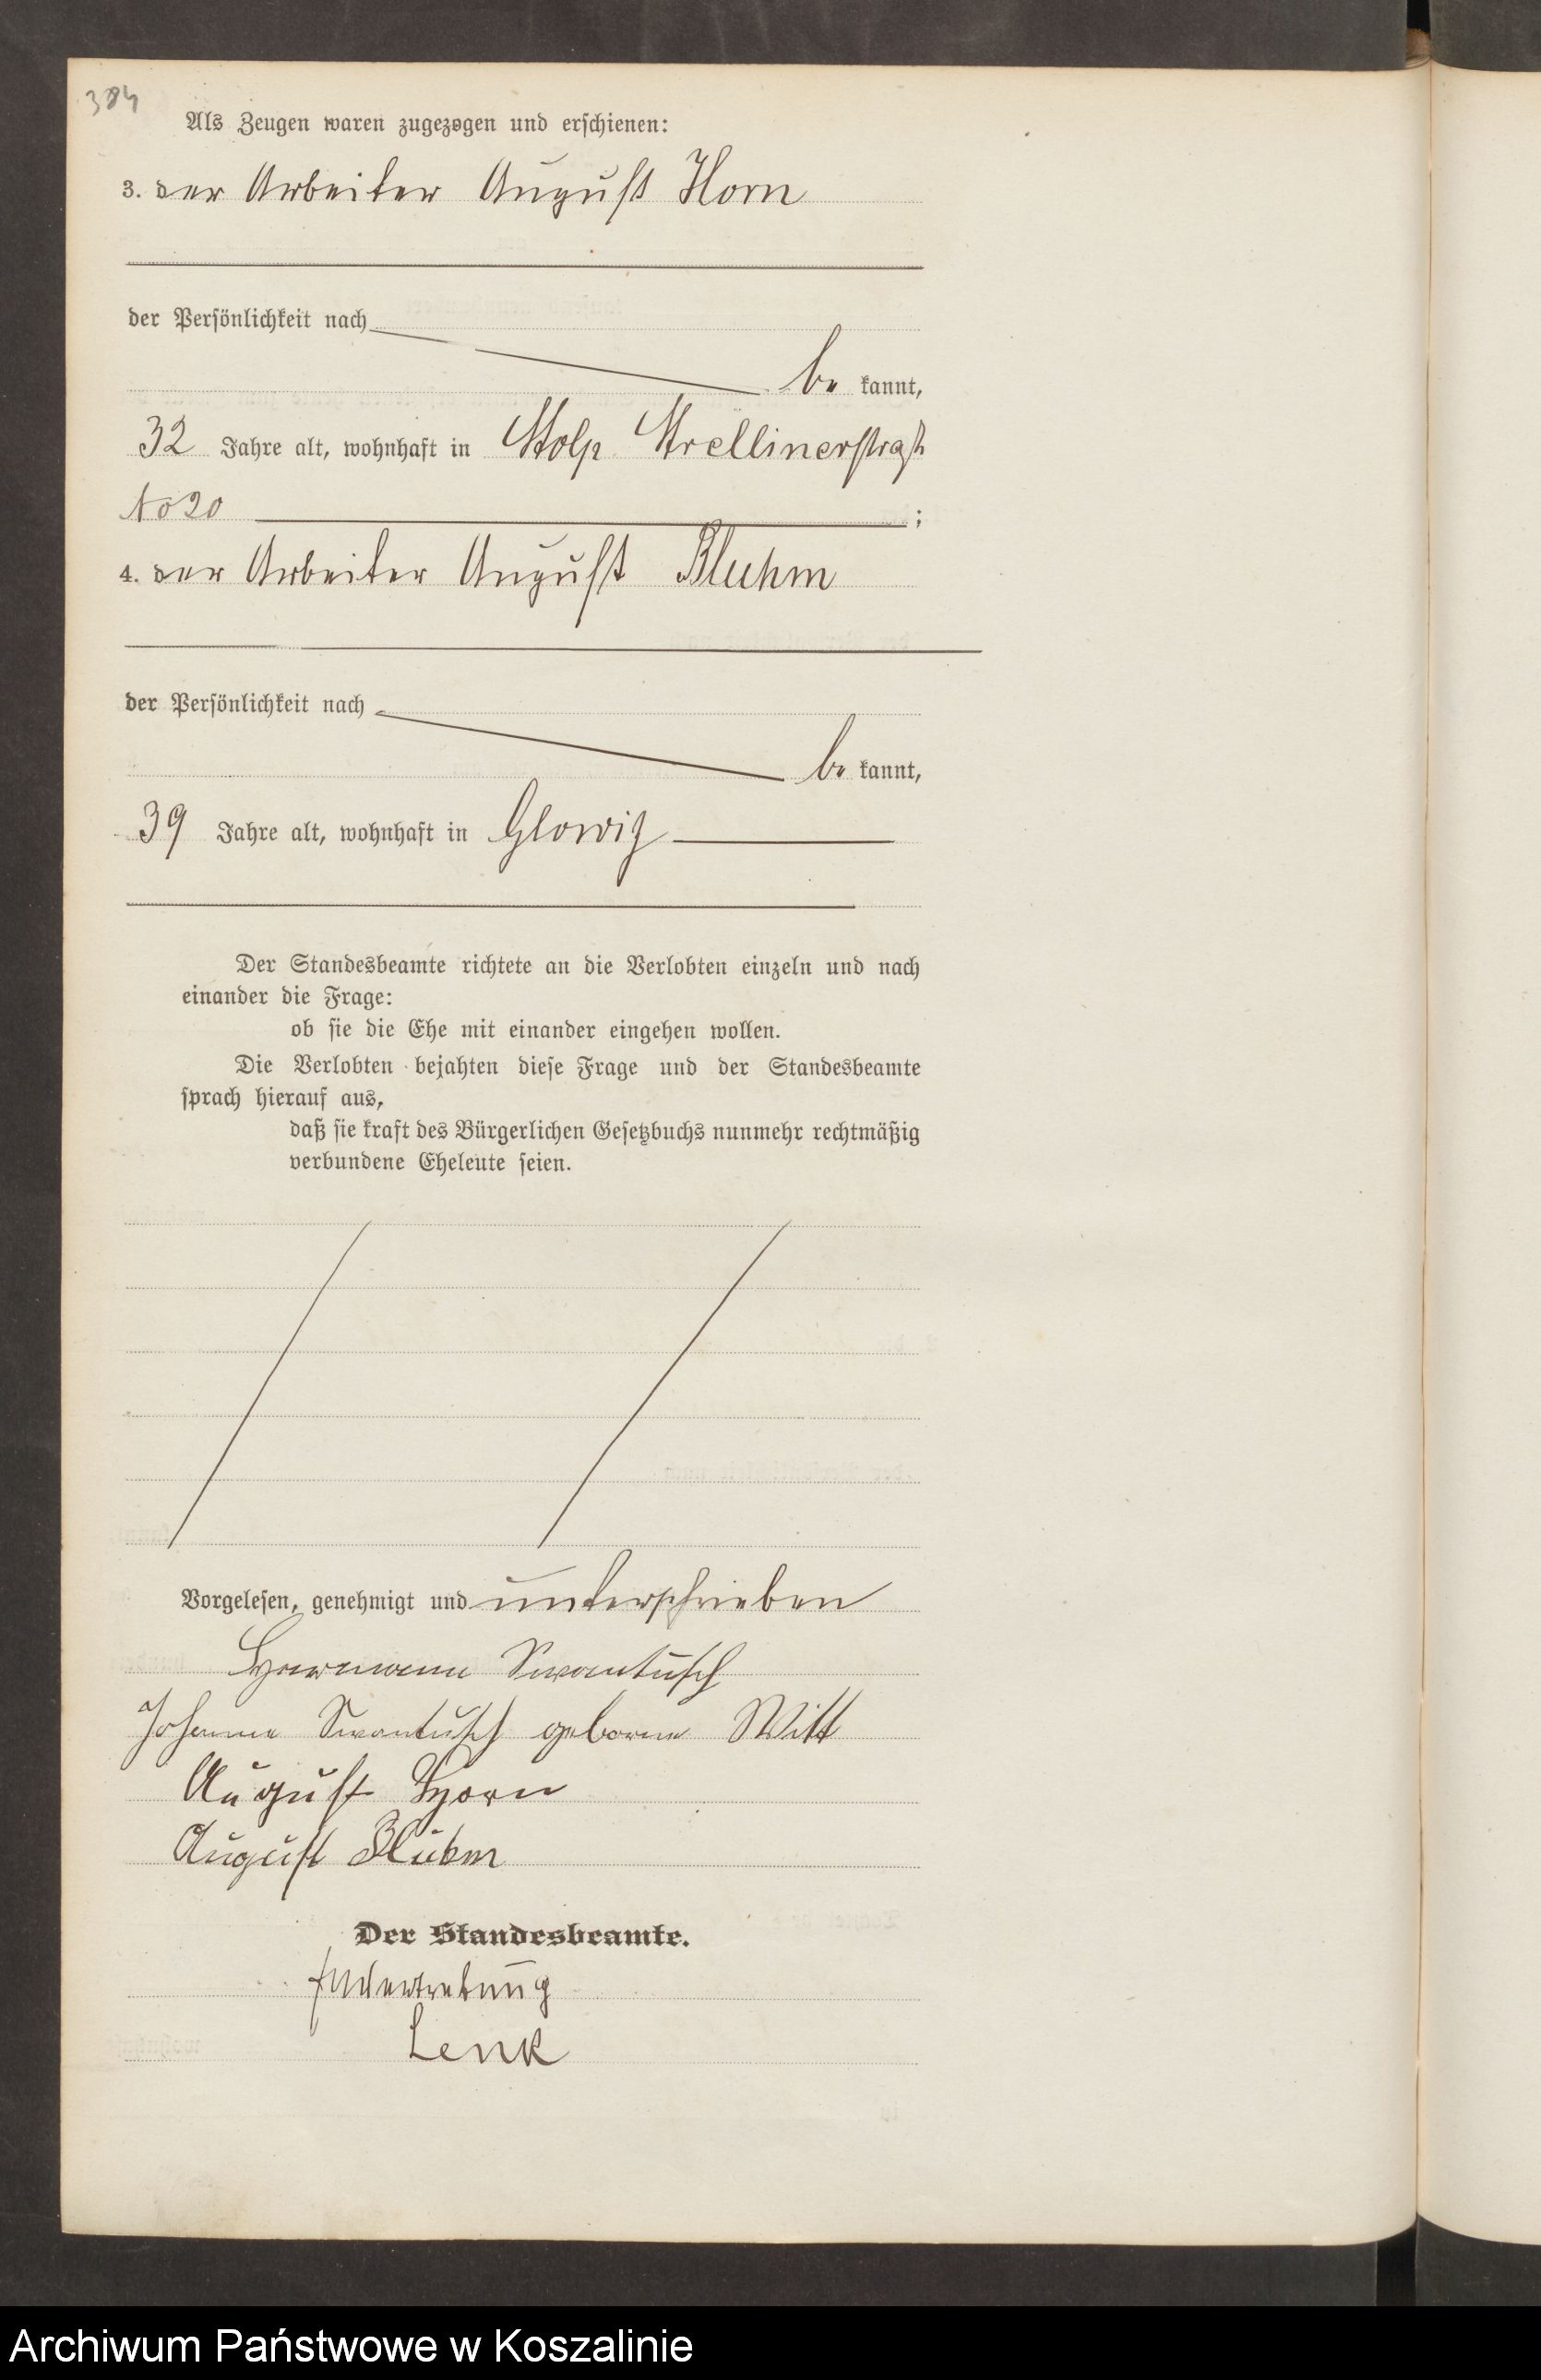 384
Als Zeugen waren zugezogen und erschienen:
3. der Arbeiter August Horn
der Persönlichkeit nach
be kannt,
32 Jahre alt, wohnhaft in Stolp Strellinerstraße
No 20 ;
4. der Arbeiter August Bluhm
der Persönlichkeit nach
be kannt,
39 Jahre alt, wohnhaft in Glowitz
Der Standesbeamte richtete an die Verlobten einzeln und nach
einander die Frage:
ob sie die Ehe mit einander eingehen wollen.
Die Verlobten bejahten diese Frage und der Standesbeamte
sprach hierauf aus,
daß sie kraft des Bürgerlichen Gesetzbuchs nunmehr rechtmäßig
verbundene Eheleute seien.
Vorgelesen, genehmigt und unterschrieben
Hermann Swantusch
Johanna Swantusch geborne Witt
August Horn
August Bluhm
Der Standesbeamte.
In Vertretung
Lenk
Archiwum Państwowe w Koszalinie